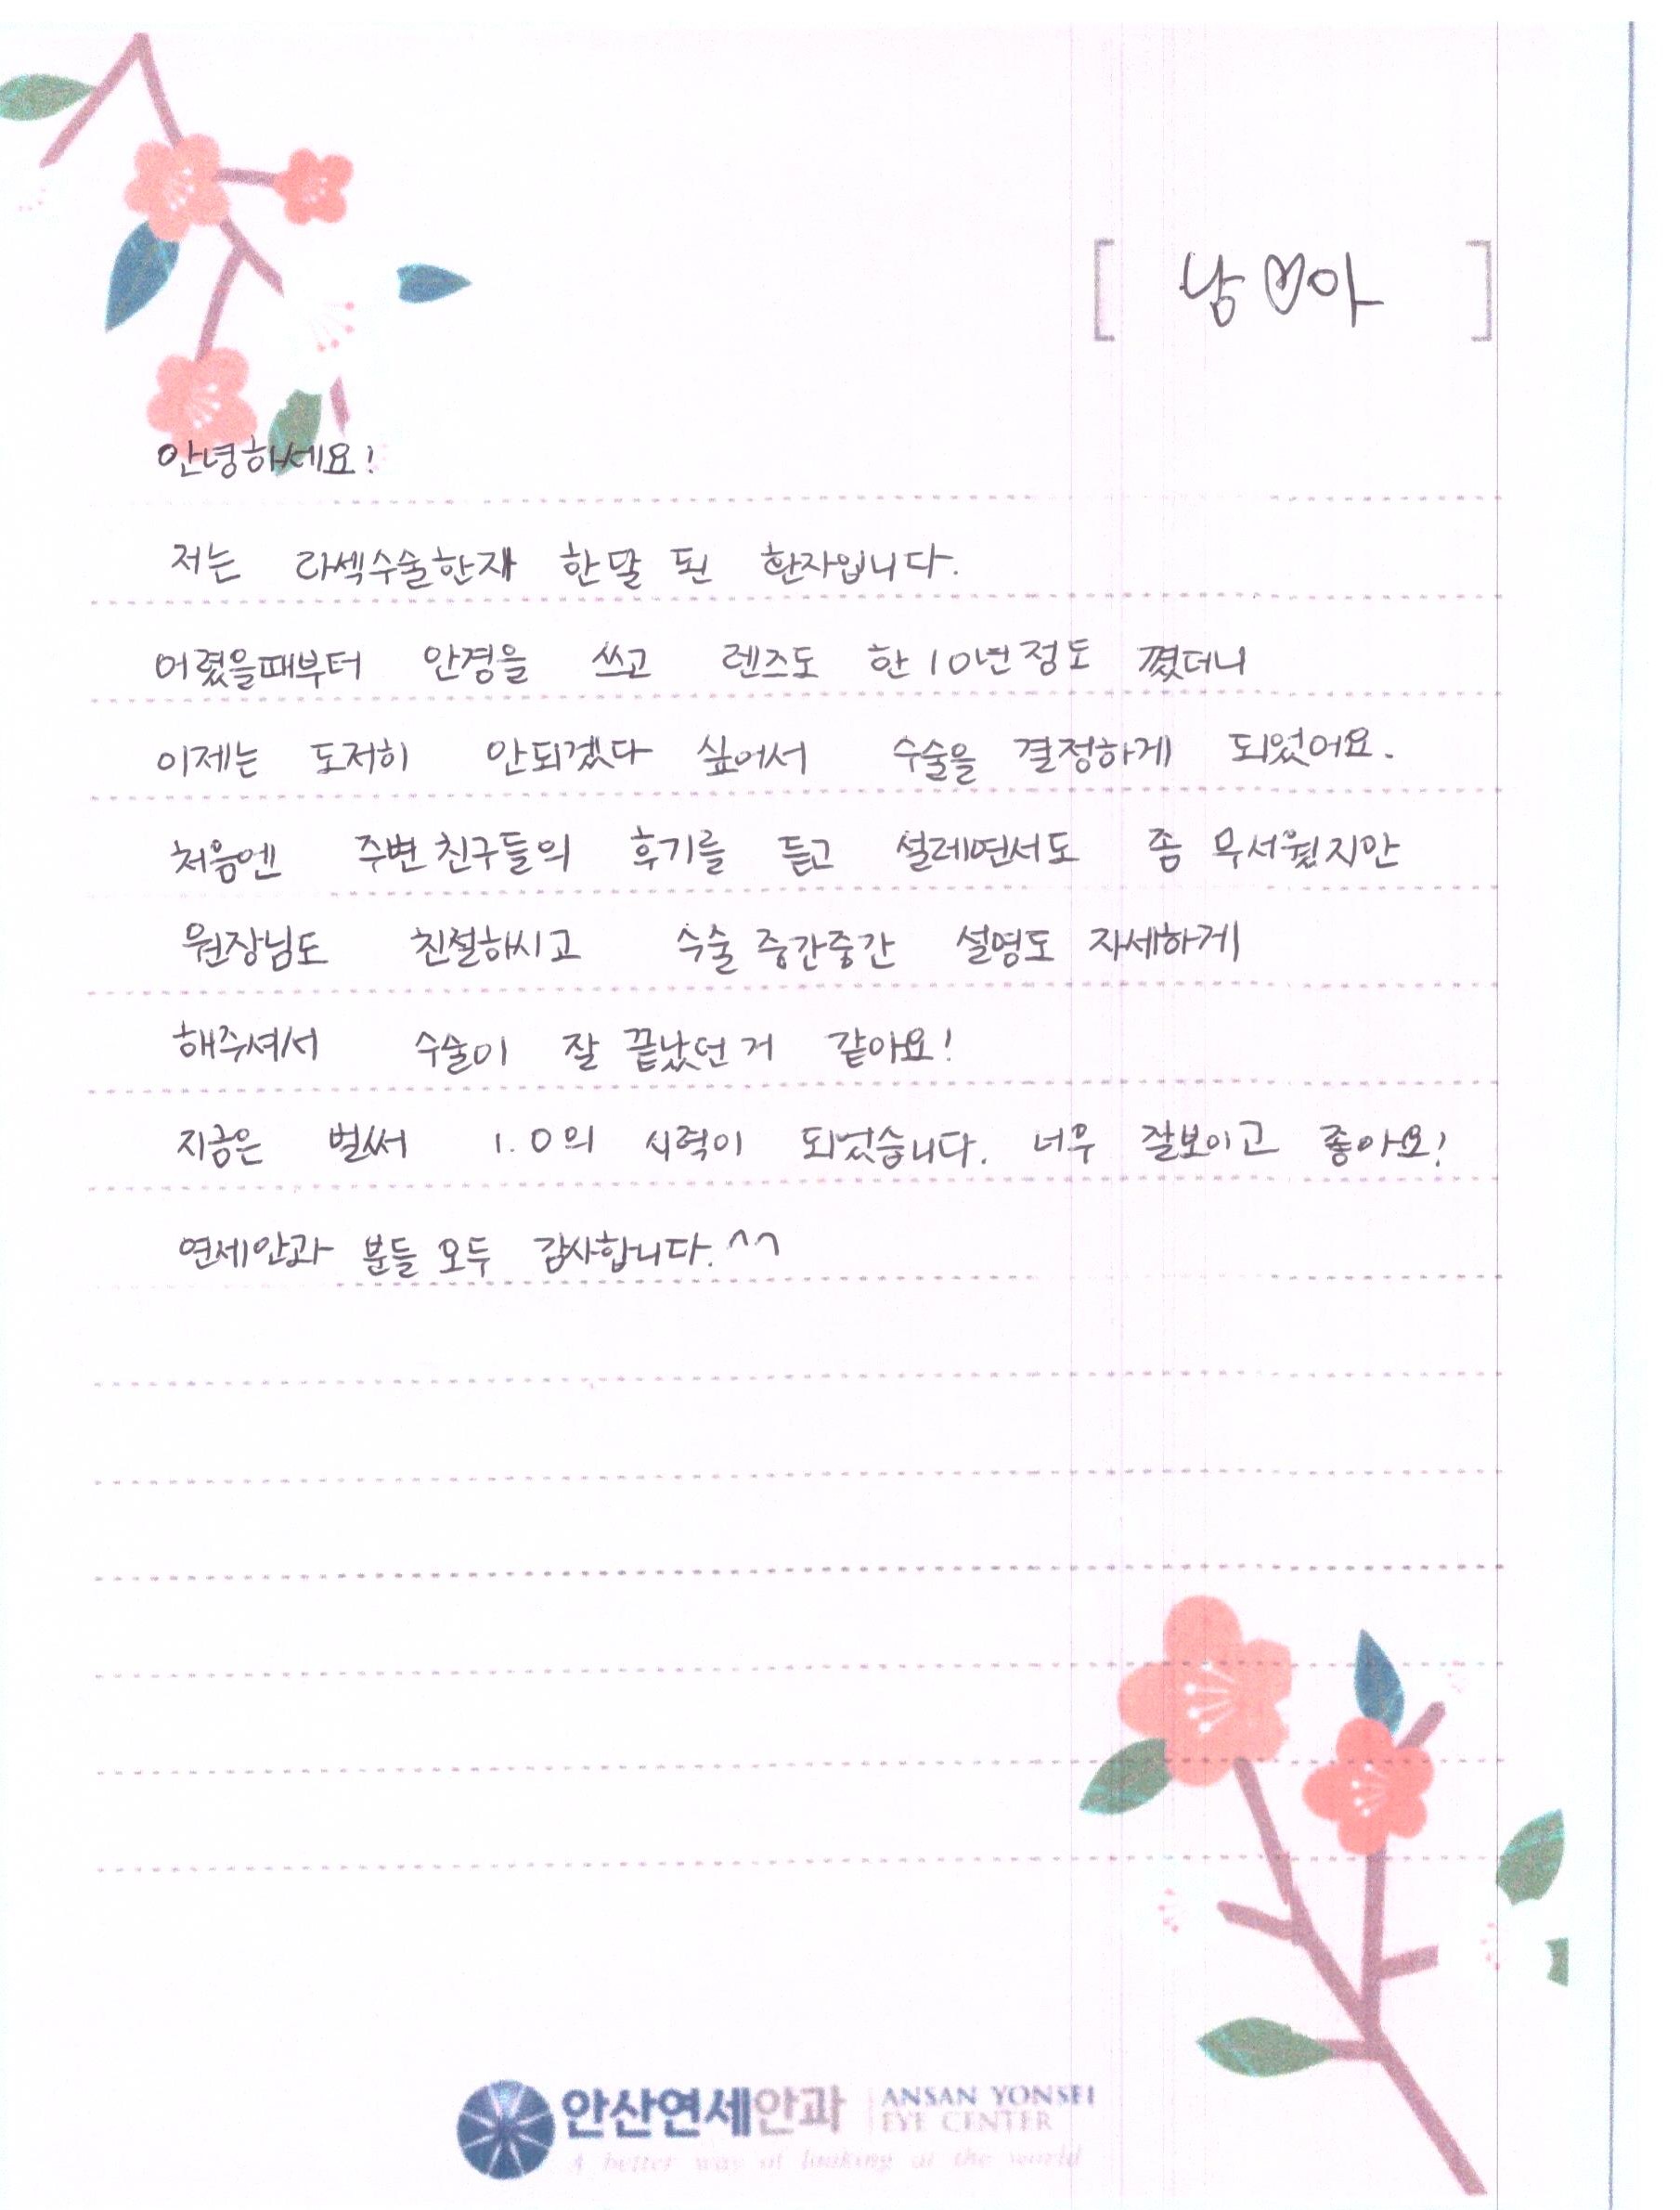 [ 남♡아 ]
안녕하세요!
저는 라섹수술한지 한달 된 환자입니다.
어렸을때부터 안경을 쓰고 렌즈도 한 10년정도 꼈더니
이제는 도저히 안되겠다 싶어서 수술을 결정하게 되었어요.
처음엔 주변친구들의 후기를 듣고 설레면서도 좀 무서웠지만
원장님도 친절하시고 수술 중간중간 설명도 자세하게
해주셔서 수술이 잘 끝났던거 같아요!
지금은 벌써 1.0의 시력이 되었습니다. 너무 잘보이고 좋아요!
연세안과 분들 모두 감사합니다.^^
안산연세안과 ANSAN YONSEI
EYE CENTER
A better way of looking at the world